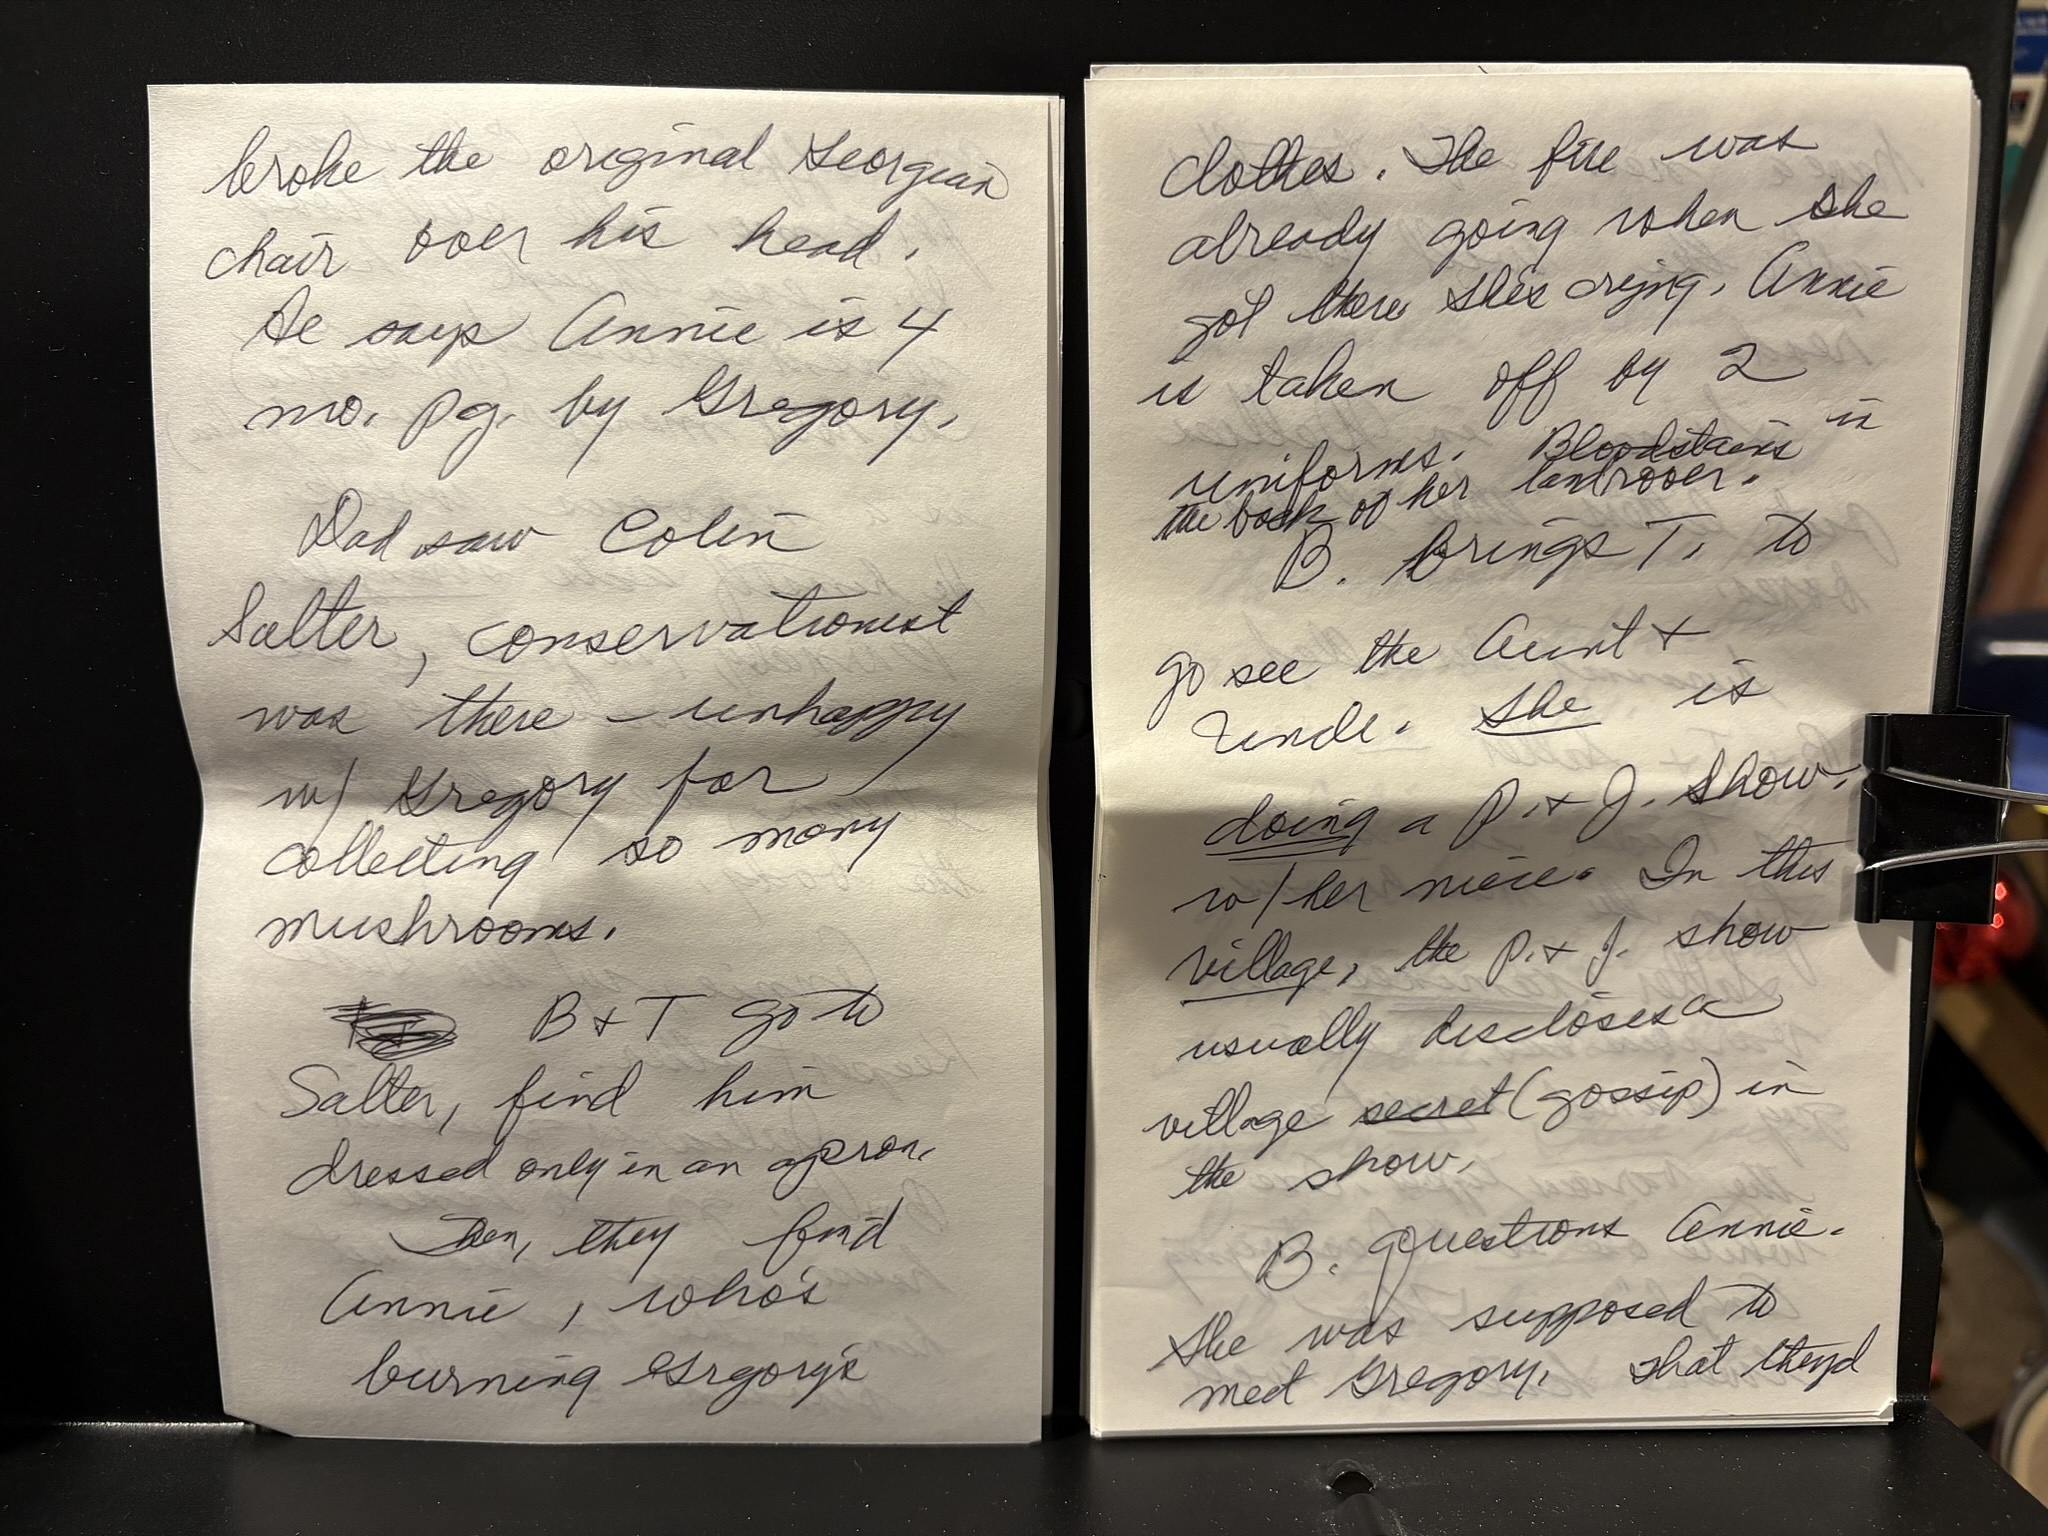 broke the original Georgian
chair over his head.
He says Annie is 4
mo. pg. by Gregory.
Dad saw Colin
Salter, conservationist
was there – unhappy
w/ Gregory for
collecting so many
mushrooms.
B & T go to
Salter, find him
dressed only in an apron.
Then, they find
Annie, who's
burning Grgory's
clothes. The fire was
already going when she
got there. She's crying. Annie
is taken off by 2
uniforms. Bloodstains in
the back of her landrover.
B. brings T. to
go see the Aunt &
Uncle. She is
doing a P. & J. show,
w/ her niece. In this
village, the P. & J. show
usually discloses a
village secret (gossip) in
the show.
B. questions Annie.
She was supposed to
meet Gregory. That they'd